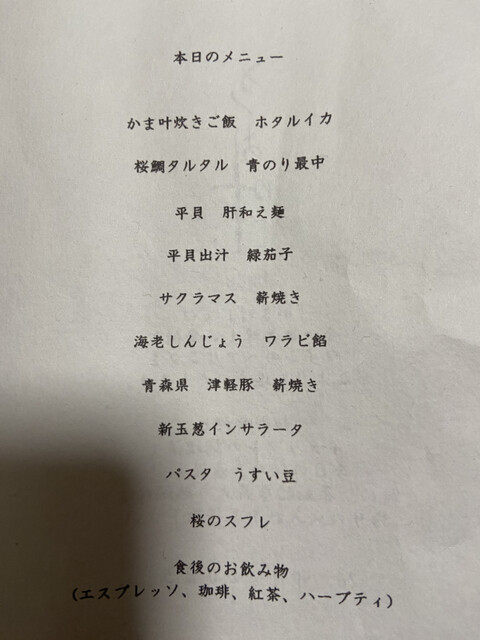 本日のメニュー
かま叶炊きご飯　ホタルイカ
桜鯛タルタル　青のり最中
平貝　肝和え麺
平貝出汁　緑茄子
サクラマス　薪焼き
海老しんじょう　ワラビ餡
青森県　津軽豚　薪焼き
新玉葱インサラータ
パスタ　うすい豆
桜のスフレ
食後のお飲み物
(エスプレッソ、珈琲、紅茶、ハーブティ)